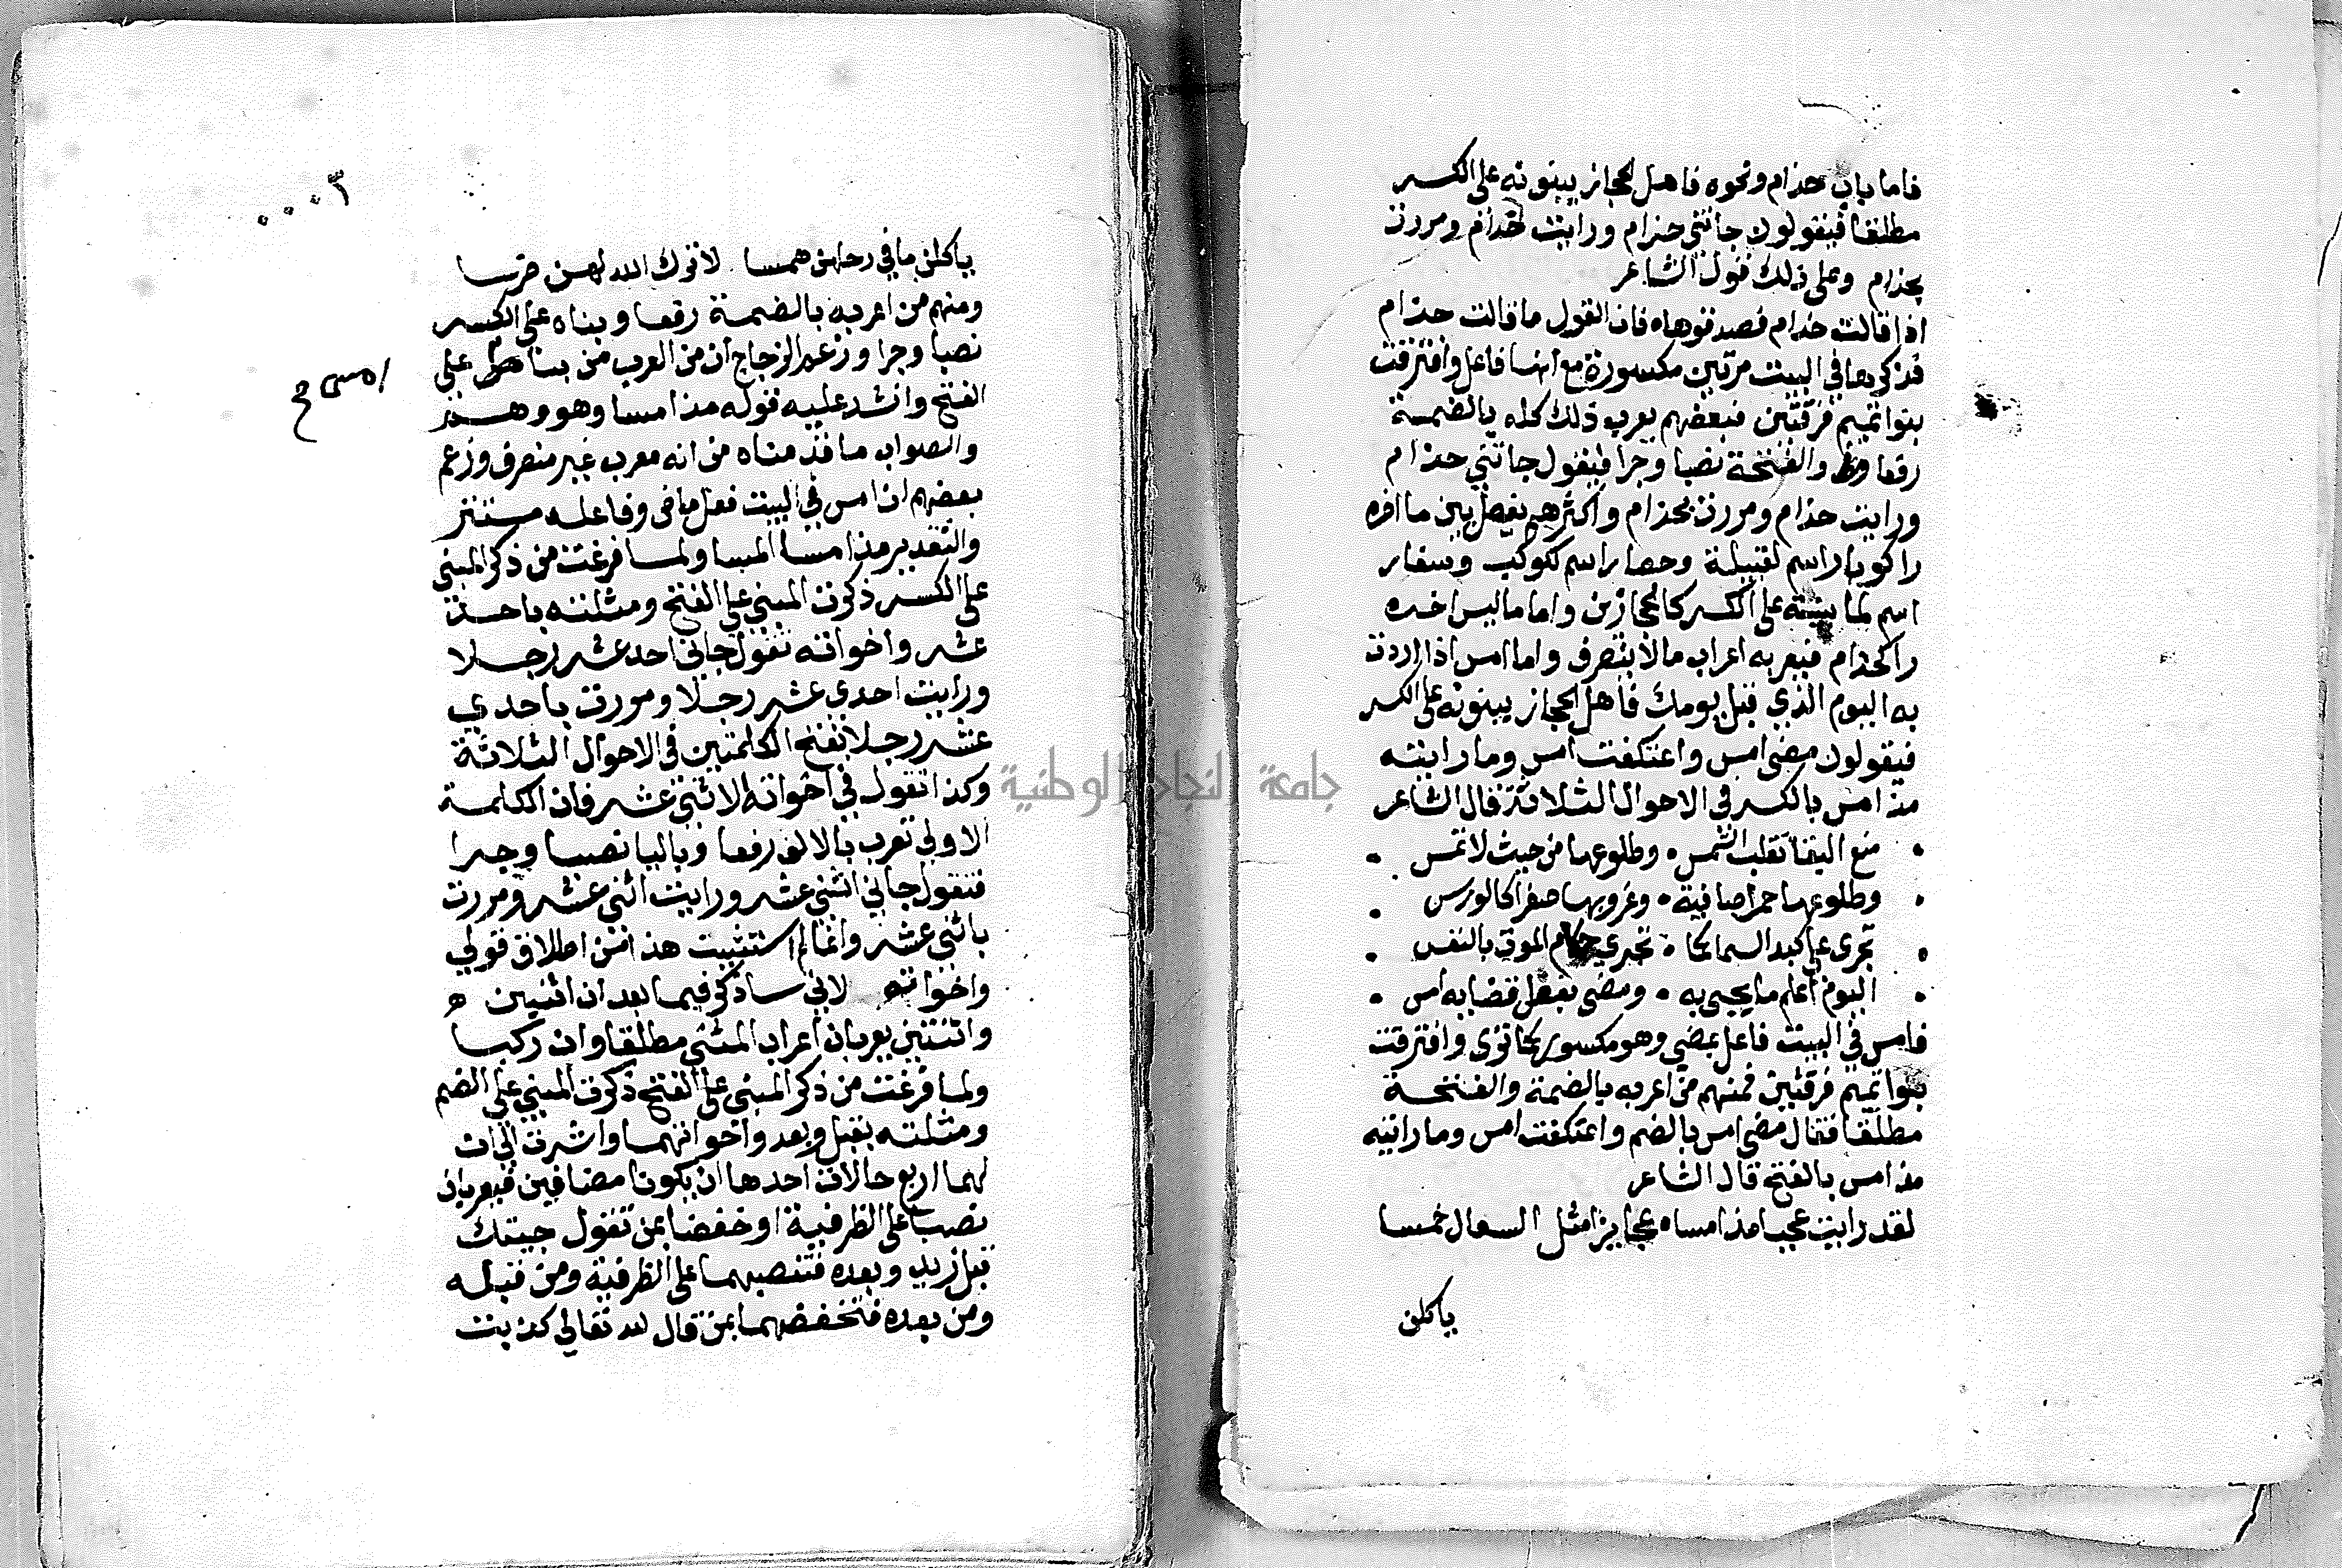 فاما باب حذام ونحوه فاهل الحجاز يبنونه على الكسر
مطلقا فيقولون جاتني حذام ورايت حذام ومررت
بحذام وعلى ذلك قول الشاعر
اذا قالت حذام فصدقوها ه فان القول ما قالت حذام
فذكرها في البيت مرتين مكسورة مع انها فاعل وافترقت
بنوا تميم فرقتين فبعضهم يعرب ذلك كله بالضمة
رفعا والفتحة نصبا وجرا فيقول جاتني حذام
ورايت حذام ومررت بحذام واكثرهم يفصل بين ما اخره
را كوبار اسم لقبيلة وحضار اسم لكوكب وسفار
اسم لما يبنيه على الكسر كالحجازين واما ما ليس اخره
را كحذام فيعربه اعراب مالا ينصرف واما امس اذا اردت
به اليوم الذي قبل يومك فاهل الحجاز يبنونه على الكسر
فيقولون مضى امس واعتكفت امس وما رايته
مذ امس بالكسر في الاحوال الثلاثة قال الشاعر
منع البقا تقلب الشمس • وطلوعها من حيث لا تمس
وطلوعها حمرا صافية • وغروبها صفرا كالورس
تجرى على كبد السما كما • تجري حمام الموت بالنفس
اليوم اعلم ما يجي به • ومضى بفصل قضابه امس
فامس في البيت فاعل بمضي وهو مكسور كما ترى وافترقت
بنوا تميم فرقتين فمنهم من اعربه بالضمة والفتحة
مطلقا فقال مضى امس بالضم واعتكفت امس وما رايته
مذ امس بالفتح قال الشاعر
لقد رايت عجبا مذ امسا ه عجايزا مثل السعالى خمسا
ياكلن
ياكلن ما في رحلهن همسا لا ترك الله لهن ضرسا
ومنهم من اعربه بالضمة رفعا وبناه على الكسر
نصبا وجرا وزعم الزجاج ان من العرب من بنا على
امس
الفتح وانشد عليه قوله مذ امسا وهو وهم
والصواب ما قدمناه من انه معرب غير منصرف وزعم
بعضهم ان امس في البيت فعل ماضى وفاعله مستتر
والتقدير مذ امسا المسا ولما فرغت من ذكر المبني
على الكسر ذكرت المبني على الفتح ومثلته باحد
عشر واخواته تقول جاني احد عشر رجلا
ورايت احدي عشر رجلا ومررت باحدي
عشر رجلا بفتح الكلمتين في الاحوال الثلاثة
وكذا تقول في اخواته الا اثني عشر فان الكلمة
الاولي تعرب بالالف رفعا وباليا نصبا وجرا
فتقول جاني اثني عشر ورايت اثني عشر ومررت
باثني عشر وانما استثنيت هذا من اطلاق قولي
واخواته لاني ساذكر فيما بعد ان اثنين ه
واثنتين يعربان اعراب المثنى مطلقا وان ركبا
ولما فرغت من ذكر المبني على الفتح ذكرت المبني على الضم
ومثلته بقبل وبعد واخواتهما واشرت الي ان
لهما اربع حالات احدها ان يكونا مضافين فيعربان
نصبا على الظرفية او خفضا بمن تقول جيتك
قبل زيد وبعده فتنصبهما على الظرفية ومن قبله
ومن بعده فتخفضهما بمن قال الله تعالي كذبت
جامعة النجاح الوطنية